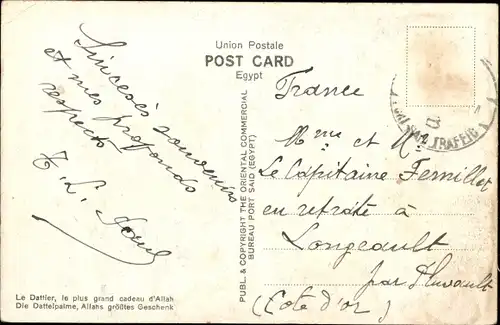 Union Postale
POST CARD
Egypt
Sincères souvenirs
et mes profonds
respects
PUBL. & COPYRIGHT THE ORIENTAL COMMERCIAL
BUREAU PORT SAID (EGYPT)
PORT SAID TRAFFIC
France
Mme et Mr
Le Capitaine
en retraite à
Longeault
par
(Cote d'or)
Le Dattier, le plus grand cadeau d'Allah
Die Dattelpalme, Allahs größtes Geschenk